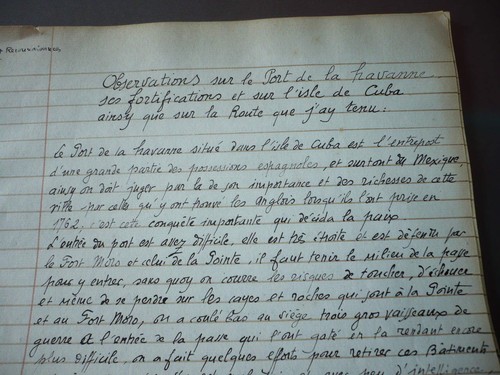 Observations sur le Port de la havanne
ses fortifications et sur l'isle de Cuba
ainsy que sur la Route que j'ay tenu:
Le Port de la havanne situé dans l'isle de Cuba est l'entrepost
d'une grande partie des possessions espagnoles, et surtout du Mexique,
ainsy on doit juger par là de son importance et des richesses de cette
ville par celles qu'y ont trouvé les Anglois lorsqu'ils l'ont prise en
1762, c'est cete conquête importante qui décida la paix
L'entrée du port est assez difficile, elle est très étroite et est défendue par
le Fort Moro et celui de la Pointe, il faut tenir le milieu de la passe
pour y entrer, sans quoy on courre les risques de toucher, d'échouer
et même de se perdre sur les cayes et roches qui sont à la Pointe
et au Fort Moro, on a coulé bas au siège trois gros vaisseaux de
guerre à l'entrée de la passe qui l'ont gaté en la rendant encore
plus difficile, on a fait quelques efforts pour retirer ces Bâtiments
avec peu d'intelligence